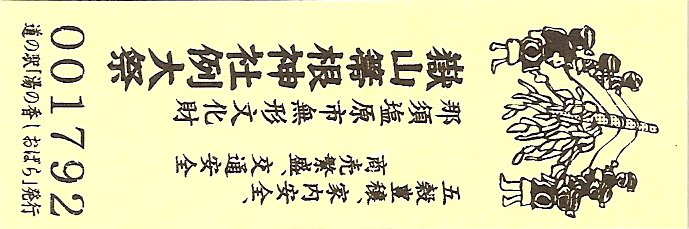 嶽山箒根神社例大祭
那須塩原市無形文化財
五穀豊穣、家内安全、
商売繁盛、交通安全
001792
道の駅「湯の香しおばら」発行